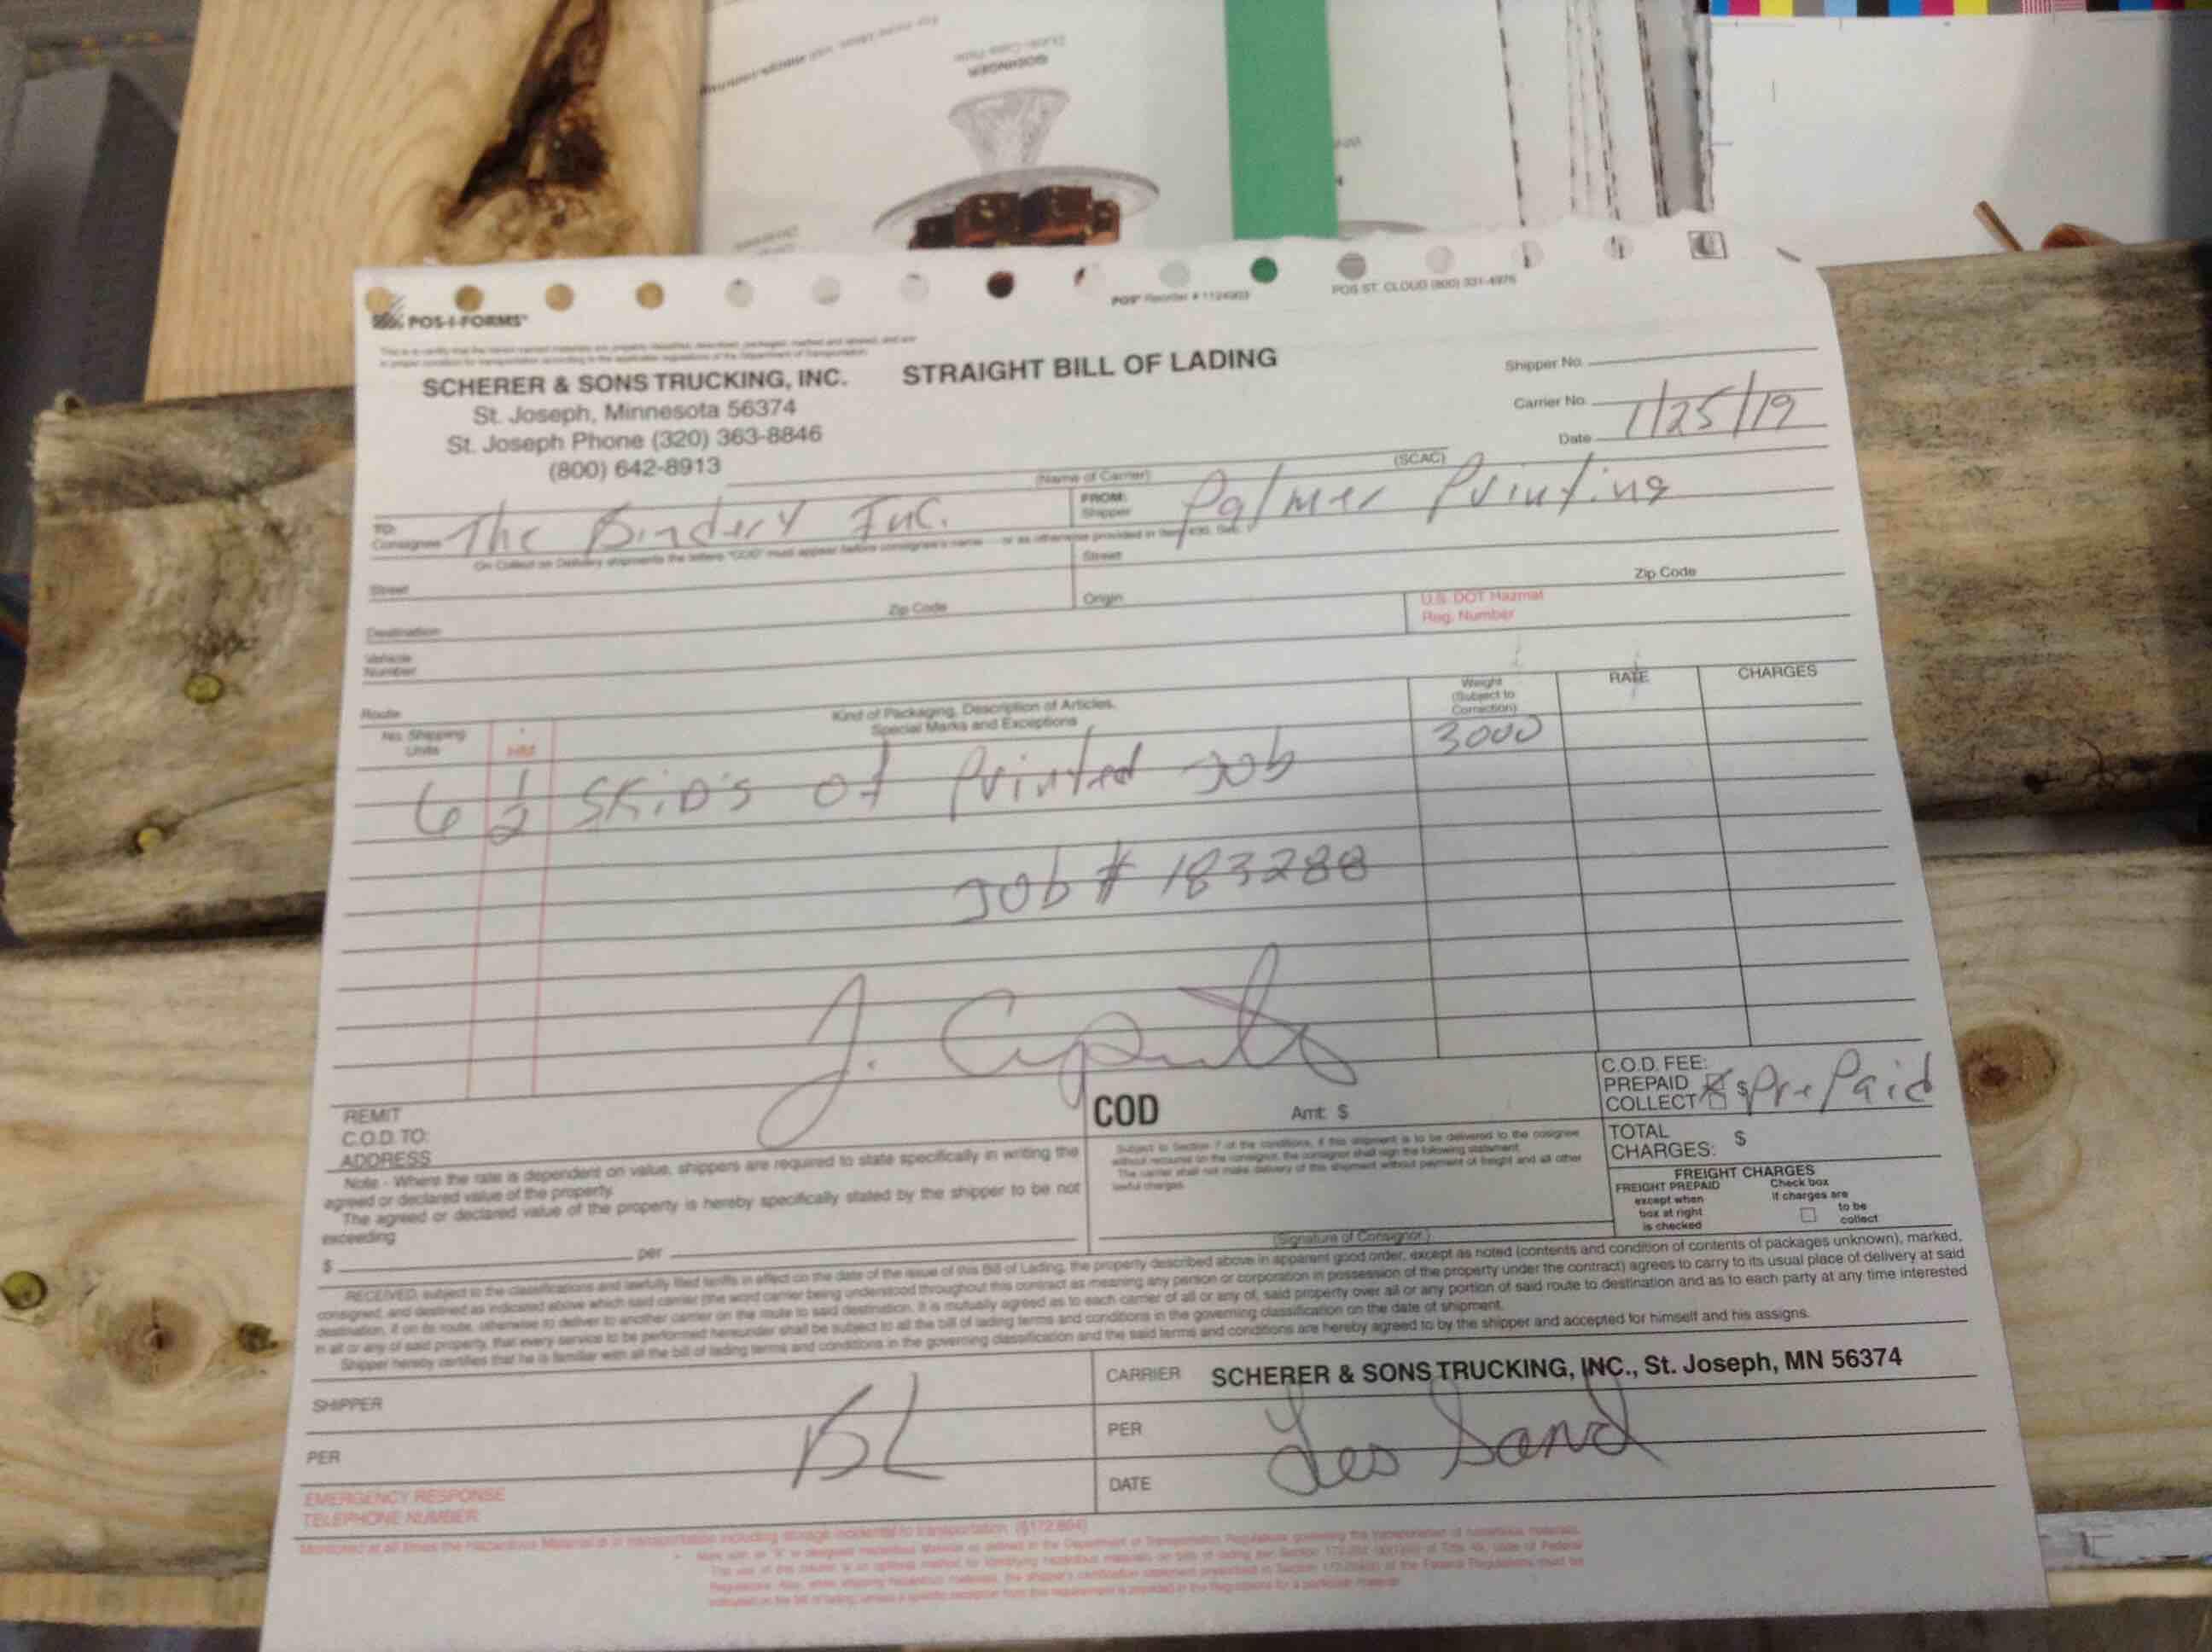 POS-I-FORMS
POS® Reorder # 1124903
POS ST. CLOUD (800) 331-4976
SCHERER & SONS TRUCKING, INC.
STRAIGHT BILL OF LADING
St. Joseph, Minnesota 56374
St. Joseph Phone (320) 363-8846
(800) 642-8913
Shipper No.
Carrier No.
Date 1/25/19
(Name of Carrier)
(SCAC)
TO:
Consignee The Bindery Inc.
FROM:
Shipper Palmer Printing
On Collect on Delivery shipments the letters "COD" must appear before consignee's name - or as otherwise provided in Item 430, Sec. 1
Street
Street
Zip Code
Zip Code
Destination
Origin
U.S. DOT Hazmat
Reg. Number
Vehicle
Number
Route
No. Shipping
Units
HM
Kind of Packaging, Description of Articles,
Special Marks and Exceptions
Weight
(Subject to
Correction)
RATE
CHARGES
6 1/2 SKiD's of Printed Job 3000
Job # 183288
J. Caputo
REMIT
C.O.D. TO:
ADDRESS
COD Amt: $
C.O.D. FEE:
PREPAID
COLLECT $ PrePaid
Note - Where the rate is dependent on value, shippers are required to state specifically in writing the
agreed or declared value of the property.
The agreed or declared value of the property is hereby specifically stated by the shipper to be not
exceeding
$ per
Subject to Section 7 of the conditions, if this shipment is to be delivered to the consignee
without recourse on the consignor, the consignor shall sign the following statement:
The carrier shall not make delivery of this shipment without payment of freight and all other
lawful charges.
(Signature of Consignor.)
TOTAL
CHARGES: $
FREIGHT CHARGES
FREIGHT PREPAID
except when
box at right
is checked
Check box
if charges are
to be
collect
RECEIVED, subject to the classifications and lawfully filed tariffs in effect on the date of the issue of this Bill of Lading, the property described above in apparent good order, except as noted (contents and condition of contents of packages unknown), marked,
consigned, and destined as indicated above which said carrier (the word carrier being understood throughout this contract as meaning any person or corporation in possession of the property under the contract) agrees to carry to its usual place of delivery at said
destination, if on its route, otherwise to deliver to another carrier on the route to said destination. It is mutually agreed as to each carrier of all or any of, said property over all or any portion of said route to destination and as to each party at any time interested
in all or any of said property, that every service to be performed hereunder shall be subject to all the bill of lading terms and conditions in the governing classification on the date of shipment.
Shipper hereby certifies that he is familiar with all the bill of lading terms and conditions in the governing classification and the said terms and conditions are hereby agreed to by the shipper and accepted for himself and his assigns.
SHIPPER
CARRIER SCHERER & SONS TRUCKING, INC., St. Joseph, MN 56374
PER BL
PER Les Sand
DATE
EMERGENCY RESPONSE
TELEPHONE NUMBER: